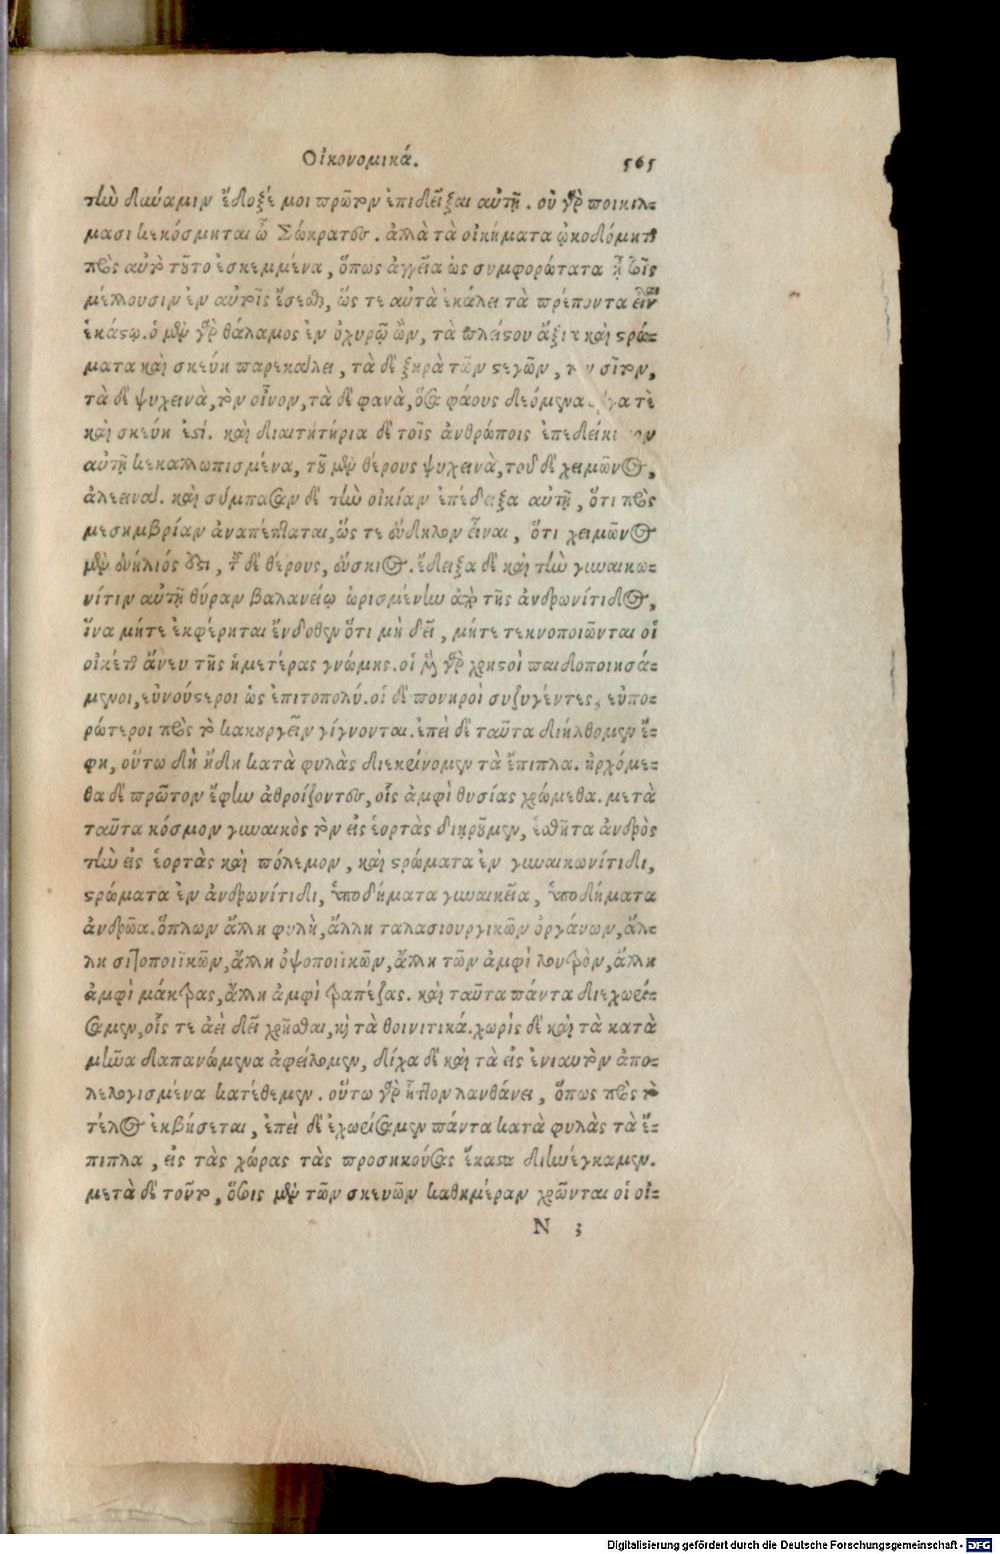 Οἰκονομικά. 565
τὴν δύναμιν ἔδοξέ μοι πρῶτον ἐπιδεῖξαι αὐτῇ. οὐ γὰρ ποικίλ-
μασι κεκόσμηται ὦ Σώκρατες. ἀλλὰ τὰ οἰκήματα ᾠκοδόμηται
πρὸς αὐτὸ τοῦτο ἐσκεμμένα, ὅπως ἀγγεῖα ὡς συμφορώτατα ᾖ τοῖς
μέλλουσιν ἐν αὐτοῖς ἔσεσθαι, ὥς τε αὐτὰ ἐκάλει τὰ πρέποντα εἶναι
ἑκάστῳ. ὁ μὲν γὰρ θάλαμος ἐν ὀχυρῷ ὢν, τὰ πλείστου ἄξια καὶ στρώ-
ματα καὶ σκεύη παρεκάλει, τὰ δὲ ξηρὰ τῶν στεγῶν, τὸν σῖτον,
τὰ δὲ ψυχεινὰ, τὸν οἶνον, τὰ δὲ φανὰ, ὅσα φάους δεόμενα ἔργα τὲ
καὶ σκεύη ἐστί. καὶ διαιτητήρια δὲ τοῖς ἀνθρώποις ἐπεδείκνυον
αὐτῇ κεκαλλωπισμένα, τοῦ μὲν θέρους ψυχεινὰ, τοῦ δὲ χειμῶνος,
ἀλεεινά. καὶ σύμπασαν δὲ τὴν οἰκίαν ἐπέδειξα αὐτῇ, ὅτι πρὸς
μεσημβρίαν ἀναπέπταται, ὥς τε εὔδηλον εἶναι, ὅτι χειμῶνος
μὲν εὐήλιός ἐστι, τοῦ δὲ θέρους, εὔσκιος. ἔδειξα δὲ καὶ τὴν γυναικω-
νίτιν αὐτῇ θύραν βαλανείῳ ὡρισμένην ἀπὸ τῆς ἀνδρωνίτιδος,
ἵνα μήτε ἐκφέρηται ἔνδοθεν ὅτι μὴ δεῖ, μήτε τεκνοποιῶνται οἱ
οἰκέται ἄνευ τῆς ἡμετέρας γνώμης. οἱ μὲν γὰρ χρηστοὶ παιδοποιησά-
μενοι, εὐνούστεροι ὡς ἐπιτοπολύ. οἱ δὲ πονηροὶ συζυγέντες, εὐπο-
ρώτεροι πρὸς τὸ κακουργεῖν γίγνονται. ἐπεὶ δὲ ταῦτα διήλθομεν ἔ-
φη, οὕτω δὴ ἤδη κατὰ φυλὰς διεκρίνομεν τὰ ἔπιπλα. ἠρχόμε-
θα δὲ πρῶτον ἔφην ἀθροίζοντες, οἷς ἀμφὶ θυσίας χρώμεθα. μετὰ
ταῦτα κόσμον γυναικὸς τὸν εἰς ἑορτὰς διῃροῦμεν, ἐσθῆτα ἀνδρὸς
τὴν εἰς ἑορτὰς καὶ πόλεμον, καὶ στρώματα ἐν γυναικωνίτιδι,
στρώματα ἐν ἀνδρωνίτιδι, ὑποδήματα γυναικεῖα, ὑποδήματα
ἀνδρῶα. ὅπλων ἄλλη φυλὴ, ἄλλη ταλασιουργικῶν ὀργάνων, ἄλ-
λη σιτοποιϊκῶν, ἄλλη ὀψοποιϊκῶν, ἄλλη τῶν ἀμφὶ λουτρὸν, ἄλλη
ἀμφὶ μάκτρας, ἄλλη ἀμφὶ τραπέζας. καὶ ταῦτα πάντα διεχωρί-
σαμεν, οἷς τε ἀεὶ δεῖ χρῆσθαι, καὶ τὰ θοινιτικά. χωρὶς δὲ καὶ τὰ κατὰ
μῆνα δαπανώμενα ἀφείλομεν, δίχα δὲ καὶ τὰ εἰς ἐνιαυτὸν ἀπο-
λελογισμένα κατέθεμεν. οὕτω γὰρ ἧττον λανθάνει, ὅπως πρὸς τὸ
τέλος ἐκβήσεται, ἐπεὶ δὲ ἐχωρίσαμεν πάντα κατὰ φυλὰς τὰ ἔ-
πιπλα, εἰς τὰς χώρας τὰς προσηκούσας ἕκαστα διηνέγκαμεν.
μετὰ δὲ τοῦτο, ὅσοις μὲν τῶν σκευῶν καθημέραν χρῶνται οἱ οἰ-
N 3
Digitalisierung gefördert durch die Deutsche Forschungsgemeinschaft - DFG